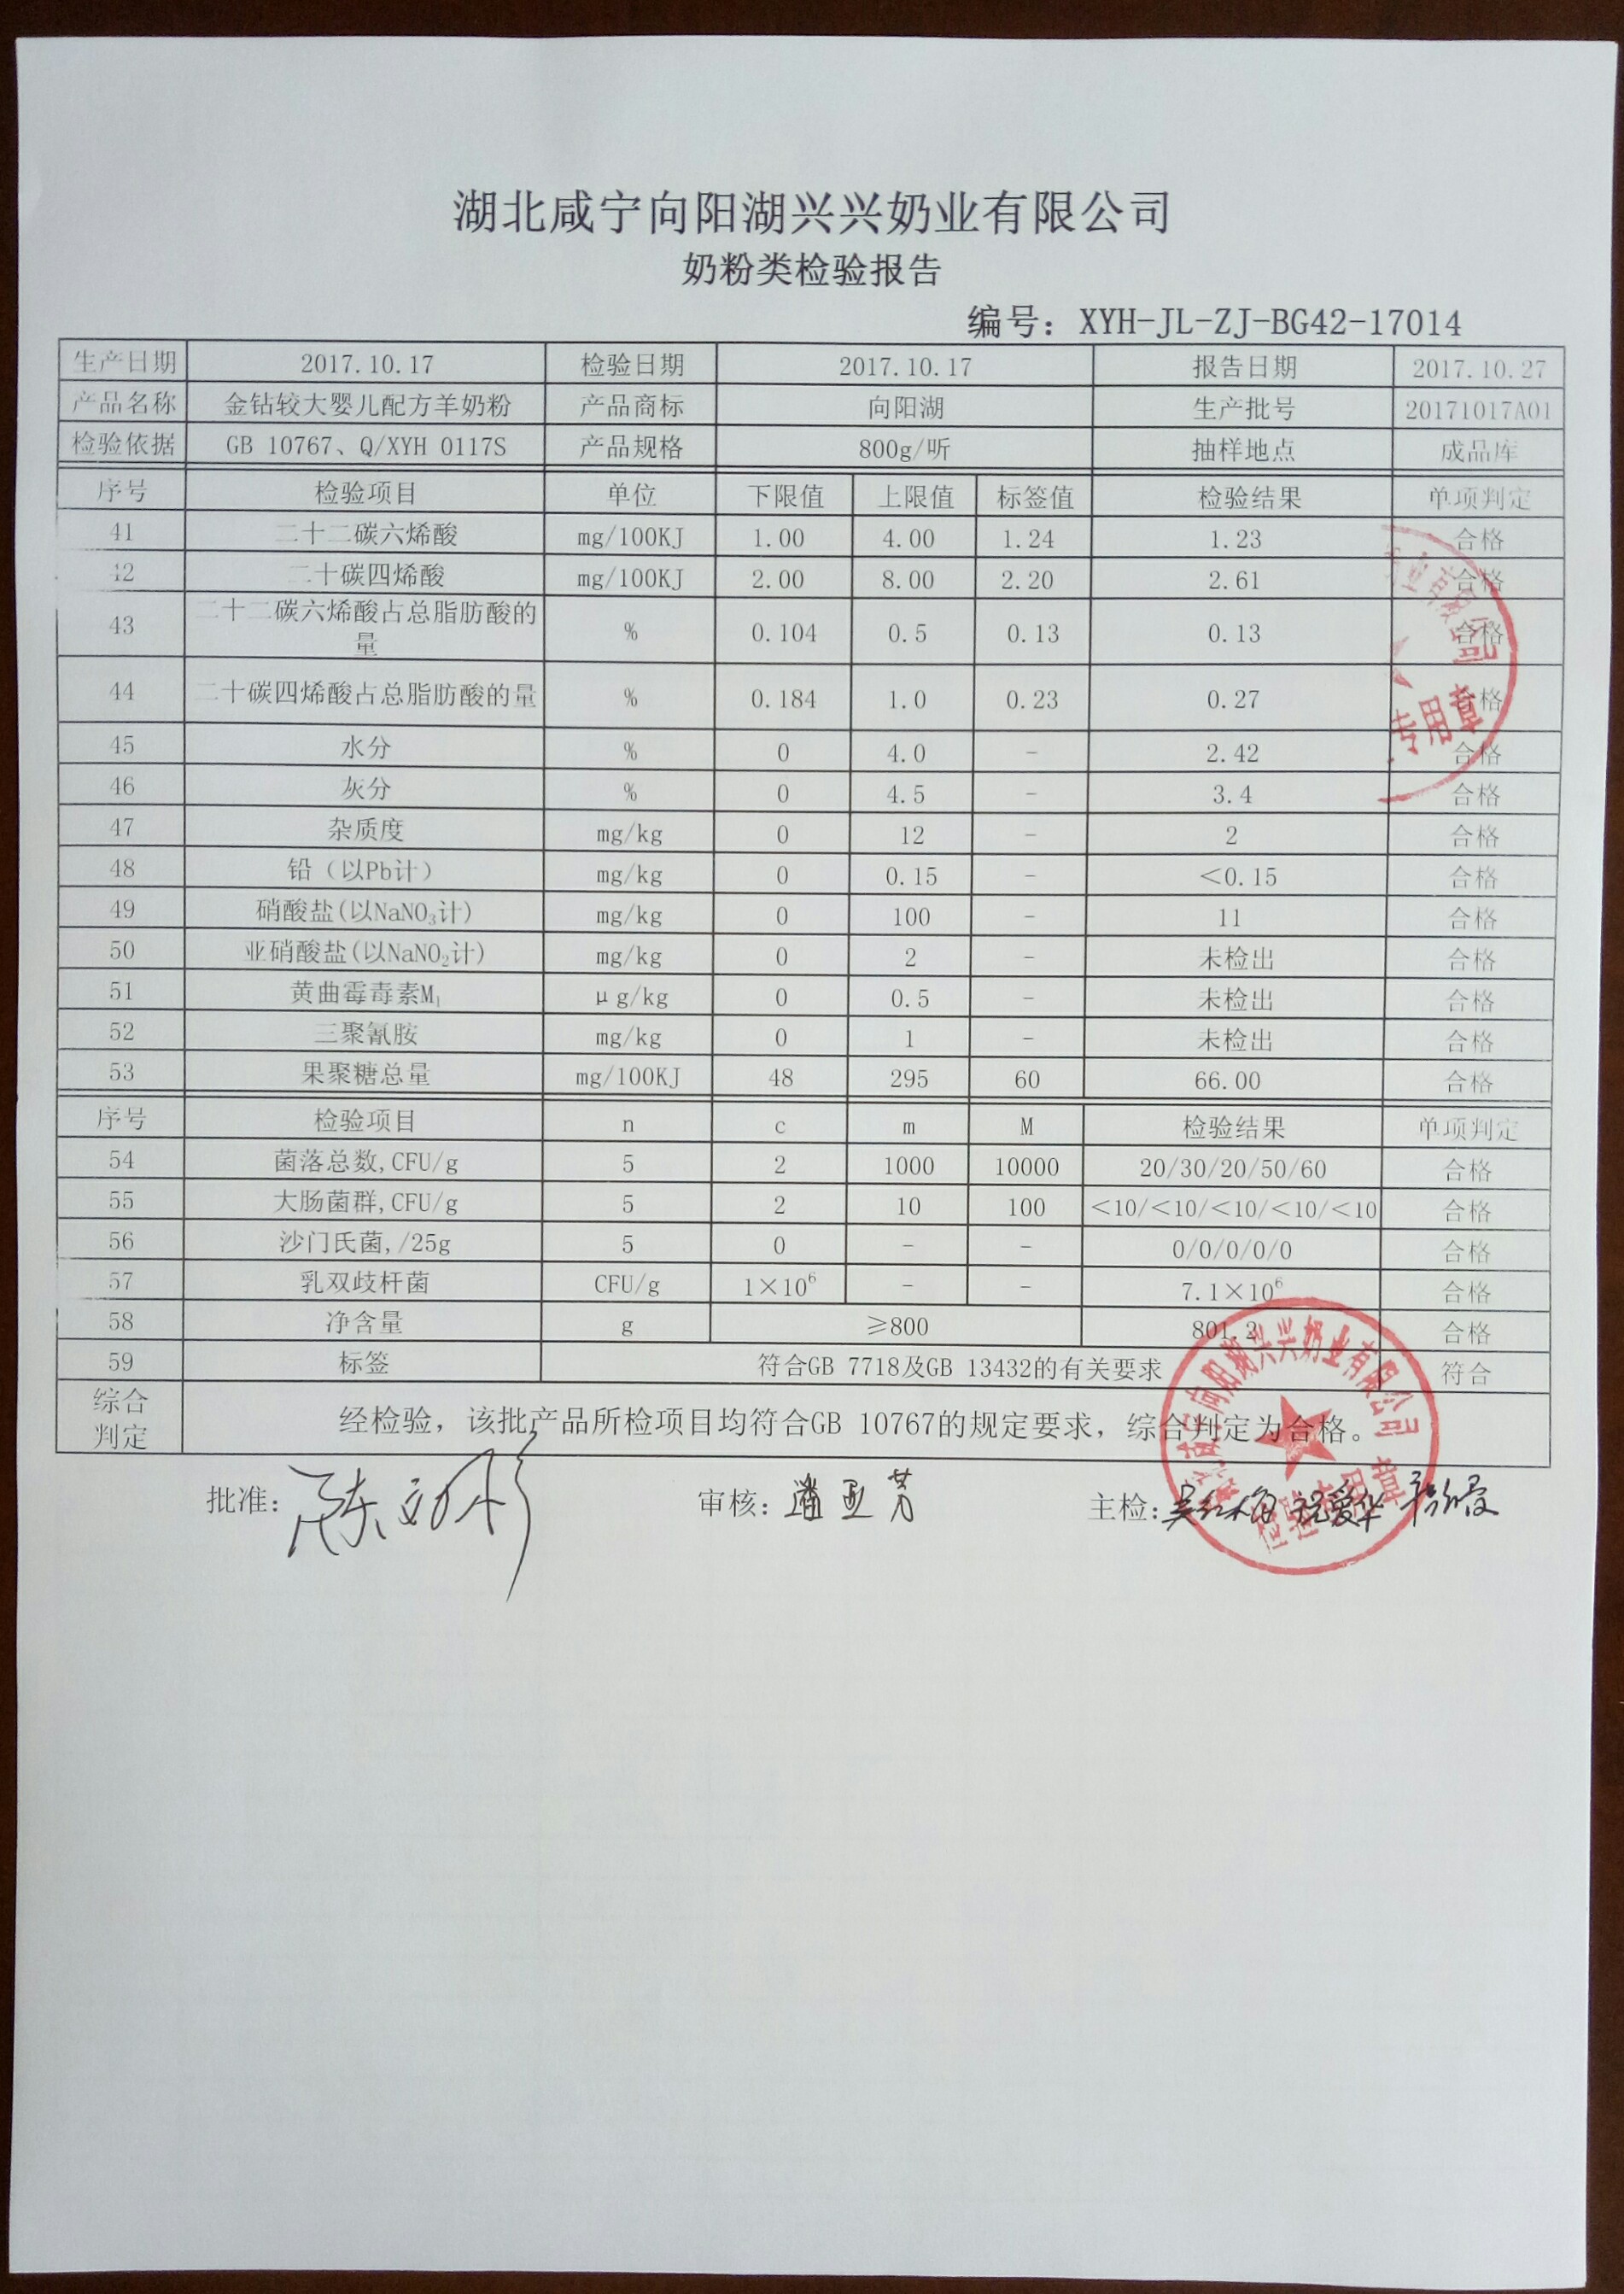 湖北咸宁向阳湖兴兴奶业有限公司
奶粉类检验报告
编号：XYH-JL-ZJ-BG42-17014
生产日期 2017.10.17 检验日期 2017.10.17 报告日期 2017.10.27
产品名称 金钻较大婴儿配方羊奶粉 产品商标 向阳湖 生产批号 20171017A01
检验依据 GB 10767、Q/XYH 0117S 产品规格 800g/听 抽样地点 成品库
序号 检验项目 单位 下限值 上限值 标签值 检验结果 单项判定
41 二十二碳六烯酸 mg/100KJ 1.00 4.00 1.24 1.23 合格
42 二十碳四烯酸 mg/100KJ 2.00 8.00 2.20 2.61 合格
43 二十二碳六烯酸占总脂肪酸的量 % 0.104 0.5 0.13 0.13 合格
44 二十碳四烯酸占总脂肪酸的量 % 0.184 1.0 0.23 0.27 合格
45 水分 % 0 4.0 - 2.42 合格
46 灰分 % 0 4.5 - 3.4 合格
47 杂质度 mg/kg 0 12 - 2 合格
48 铅（以Pb计） mg/kg 0 0.15 - <0.15 合格
49 硝酸盐(以NaNO₃计) mg/kg 0 100 - 11 合格
50 亚硝酸盐(以NaNO₂计) mg/kg 0 2 - 未检出 合格
51 黄曲霉毒素M₁ μg/kg 0 0.5 - 未检出 合格
52 三聚氰胺 mg/kg 0 1 - 未检出 合格
53 果聚糖总量 mg/100KJ 48 295 60 66.00 合格
序号 检验项目 n c m M 检验结果 单项判定
54 菌落总数,CFU/g 5 2 1000 10000 20/30/20/50/60 合格
55 大肠菌群,CFU/g 5 2 10 100 <10/<10/<10/<10/<10 合格
56 沙门氏菌,/25g 5 0 - - 0/0/0/0/0 合格
57 乳双歧杆菌 CFU/g 1×10⁶ - - 7.1×10⁶ 合格
58 净含量 g ≥800 801.2 合格
59 标签 符合GB 7718及GB 13432的有关要求 符合
综合判定 经检验，该批产品所检项目均符合GB 10767的规定要求，综合判定为合格。
批准： 审核：潘亚芳 主检：
业有限公司
专用章
向阳湖兴兴奶业有限公司
检验专用章